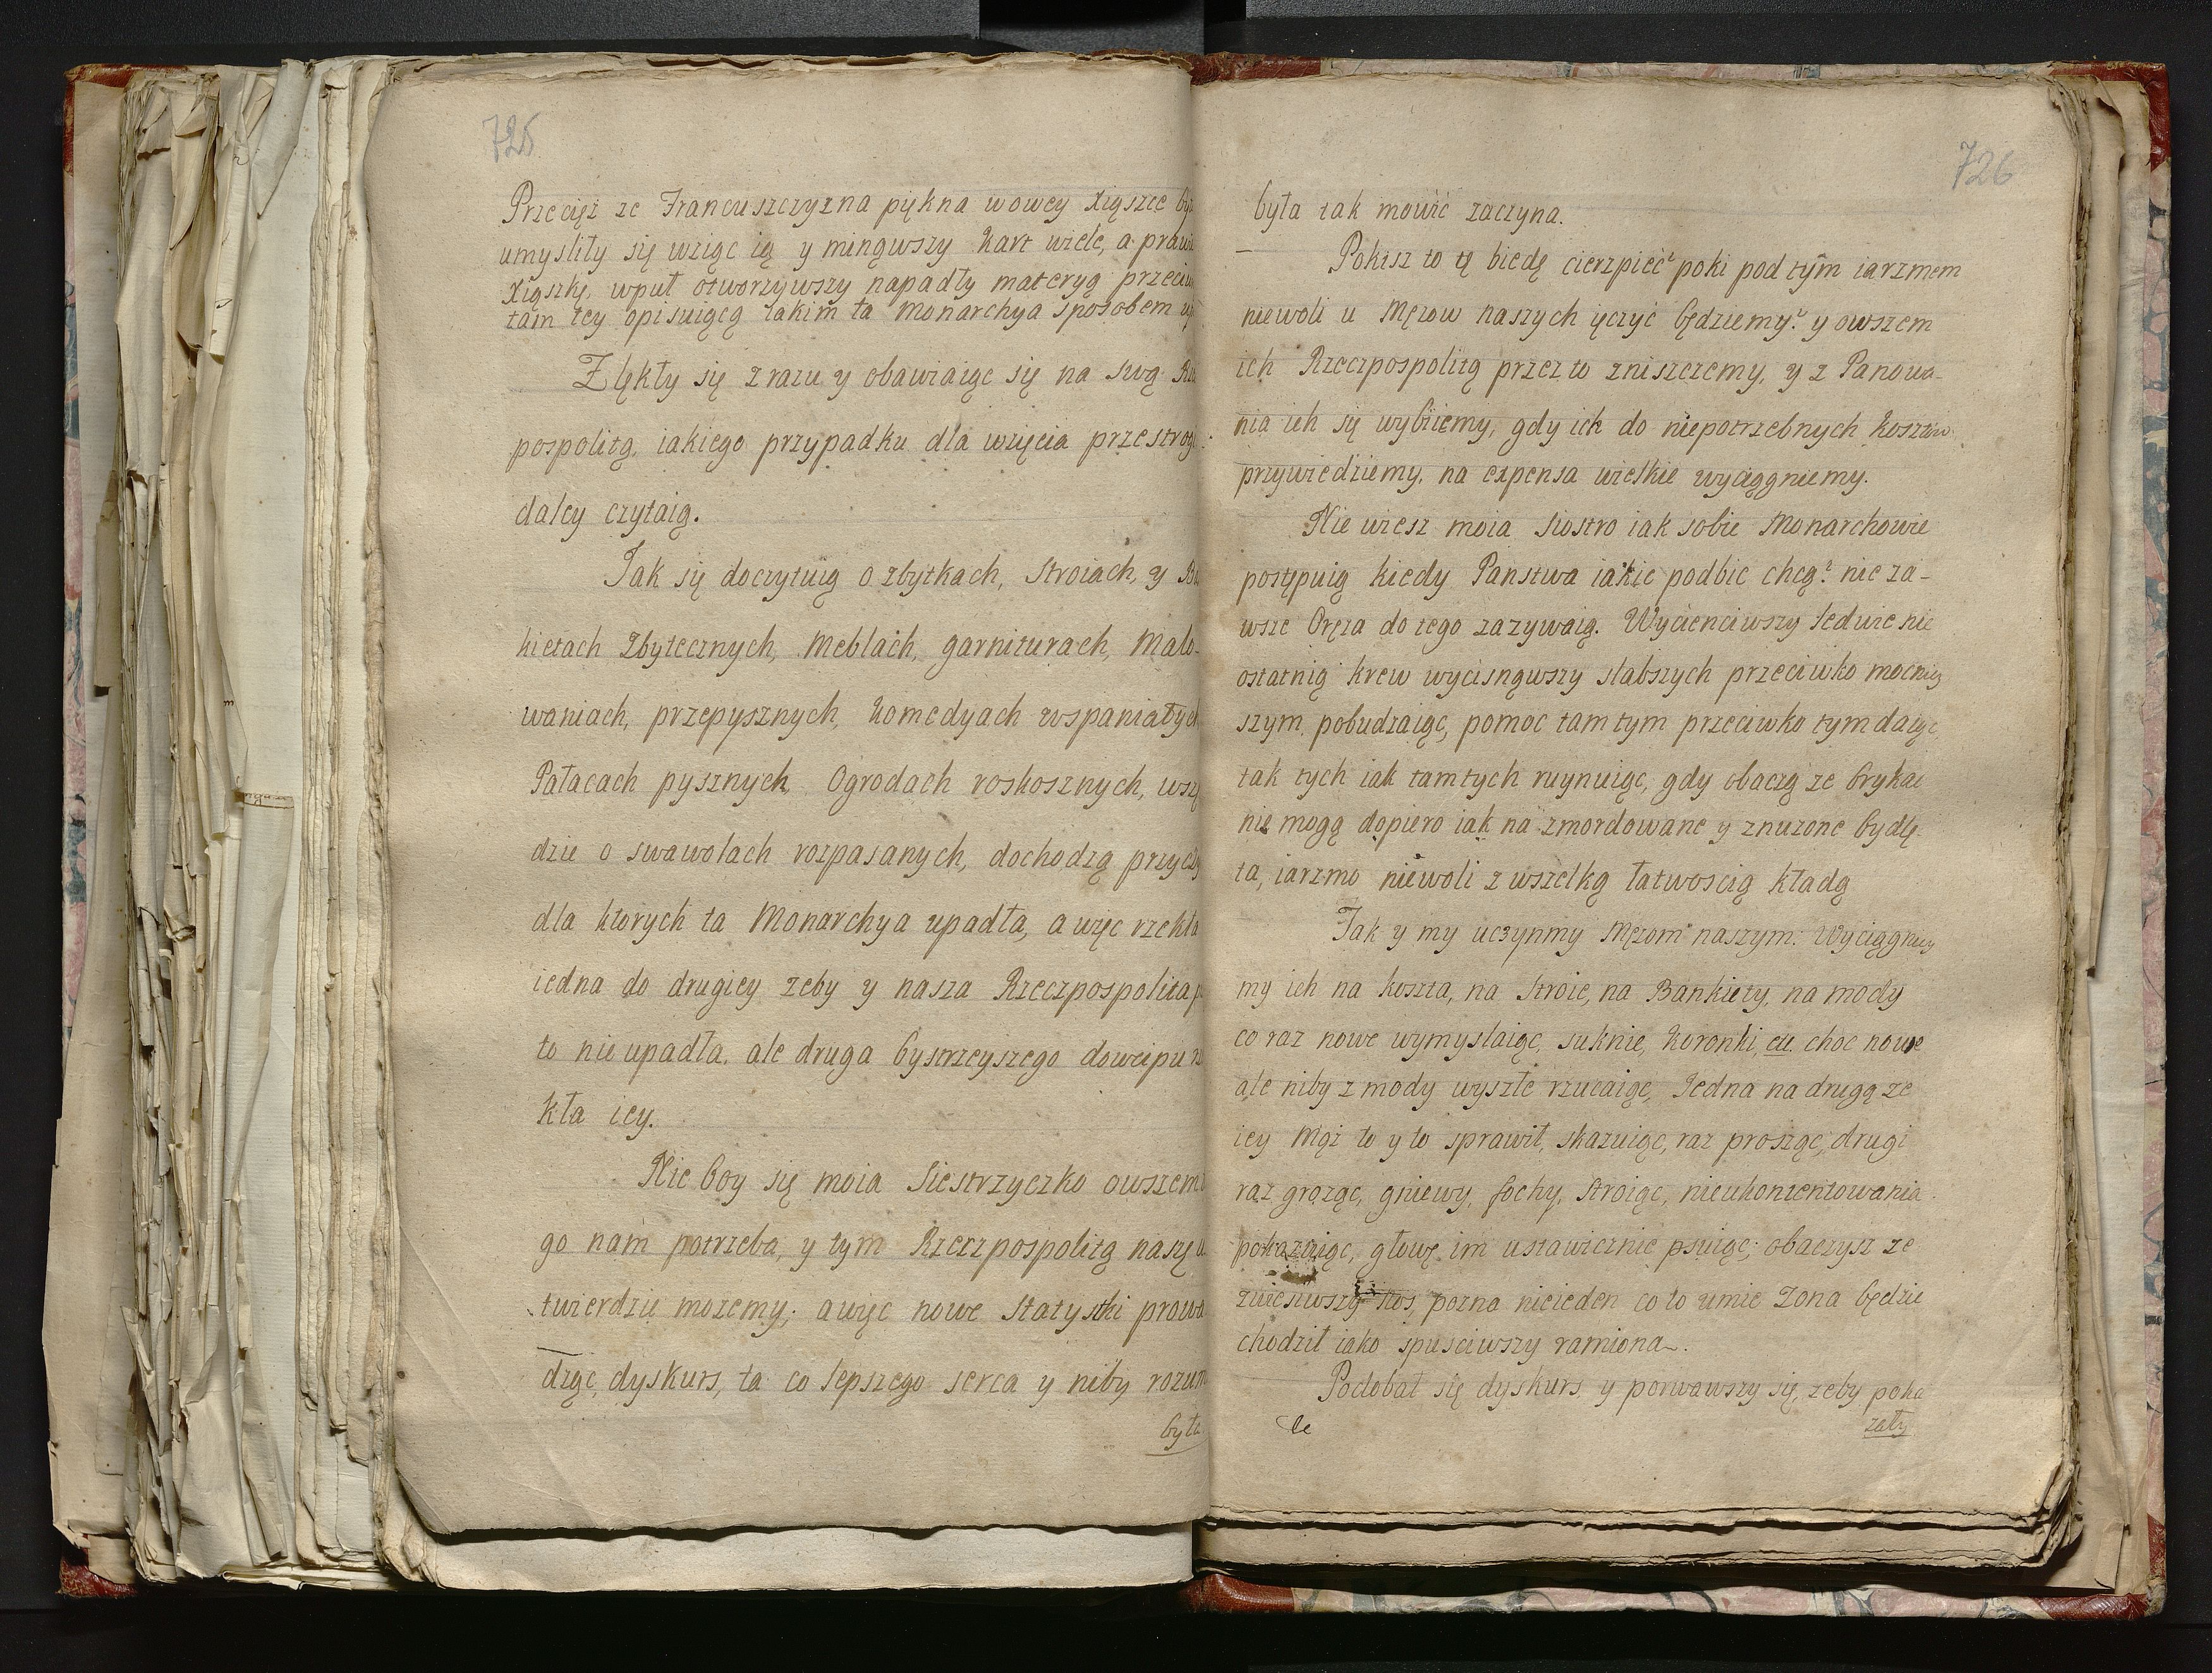 725
Przecięż ze Francuszczyzna pękna wowey Xiąszce
umysliły się wziąc ią y minąwszy Kart wiele, a
Xiąszkę, wpuł otworzywszy napadły materyą
tam tey opisuiącą iakim ta Monarchya sposobem
Zlękły się zrazu y obawiaiąc się na swą
pospolitą, iakiego przypadku dla wzięcia
daley czytaią.
Jak się doczytuią o zbytkach, Stroiach, y
kietach Zbytecznych, Meblach, garniturach, Malo-
waniach, przepysznych, Komedyach wspaniałych
Pałacach pysznych, Ogrodach roskosznych,
dzie o swawolach rozpasanych, dochodzą
dla ktorych ta Monarchya upadła, a więc rzekła
iedna do drugiey zeby y nasza Rzeczpospolita
to nie upadła. ale druga bystrzeyszego dowcipu
kła iey.
Nie boy się moia Siestrzyczko owszem
go nam potrzeba, y tym Rzeczpospolitą naszę
twierdzic mozemy; a więc nowe Statystki prowa
dząc, dyskurs, ta co lepszego serca y niby
była
726
była tak mowić zaczyna.
Pokisz to tę biedę cierzpieć? poki pod tym iarzmem
niewoli u Męzow naszych ięczyć będziemy? y owszem
ich Rzeczpospolitą przez to zniszczemy, y z Panowa-
nia ich się wybiiemy, gdy ich do niepotrzebnych kosztow
przywiedziemy, na expensa wielkie wyciągniemy.
Nie wiesz moia Siostro iak sobie Monarchowie
postępuią kiedy Panstwa iakie podbic chcą? nie za-
wsze Oręza do tego zazywaią. Wycienciwszy ledwie nie
ostatnią krew wycisnąwszy słabszych przeciwko mocniey
szym, pobudzaiąc, pomoc tam tym przeciwko tym daiąc,
tak tych iak tamtych ruynuiąc, gdy obaczą ze brykac
nie mogą dopiero iak na zmordowane y znuzone bydlę-
ta, iarzmo niewoli z wszelką łatwoscią kładą
Jak y my uczynmy Męzom naszym: Wyciągniey
my ich na koszta, na Stroie, na Bankiety, na mody
co raz nowe wymyslaiąc, suknie, Koronki, choc nowe
ale niby z mody wyszłe rzucaiąc, Jedna na drugą ze
iey Mąż to y to sprawił, skazuiąc, raz prosząc, drugi
raz grożąc, gniewy, fochy, Stroiąc, nieukontentowania
pokazuiąc, głowę im ustawicznie psuiąc; obaczysz ze
zwiesiwszy nos, pozna nieieden co to umie Zona będzie
chodził iako spusciwszy ramiona.
Podobał się dyskurs, y porwawszy się, zeby poka
zały